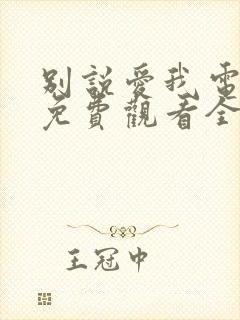 別說愛我電
免費觀看全
王冠中